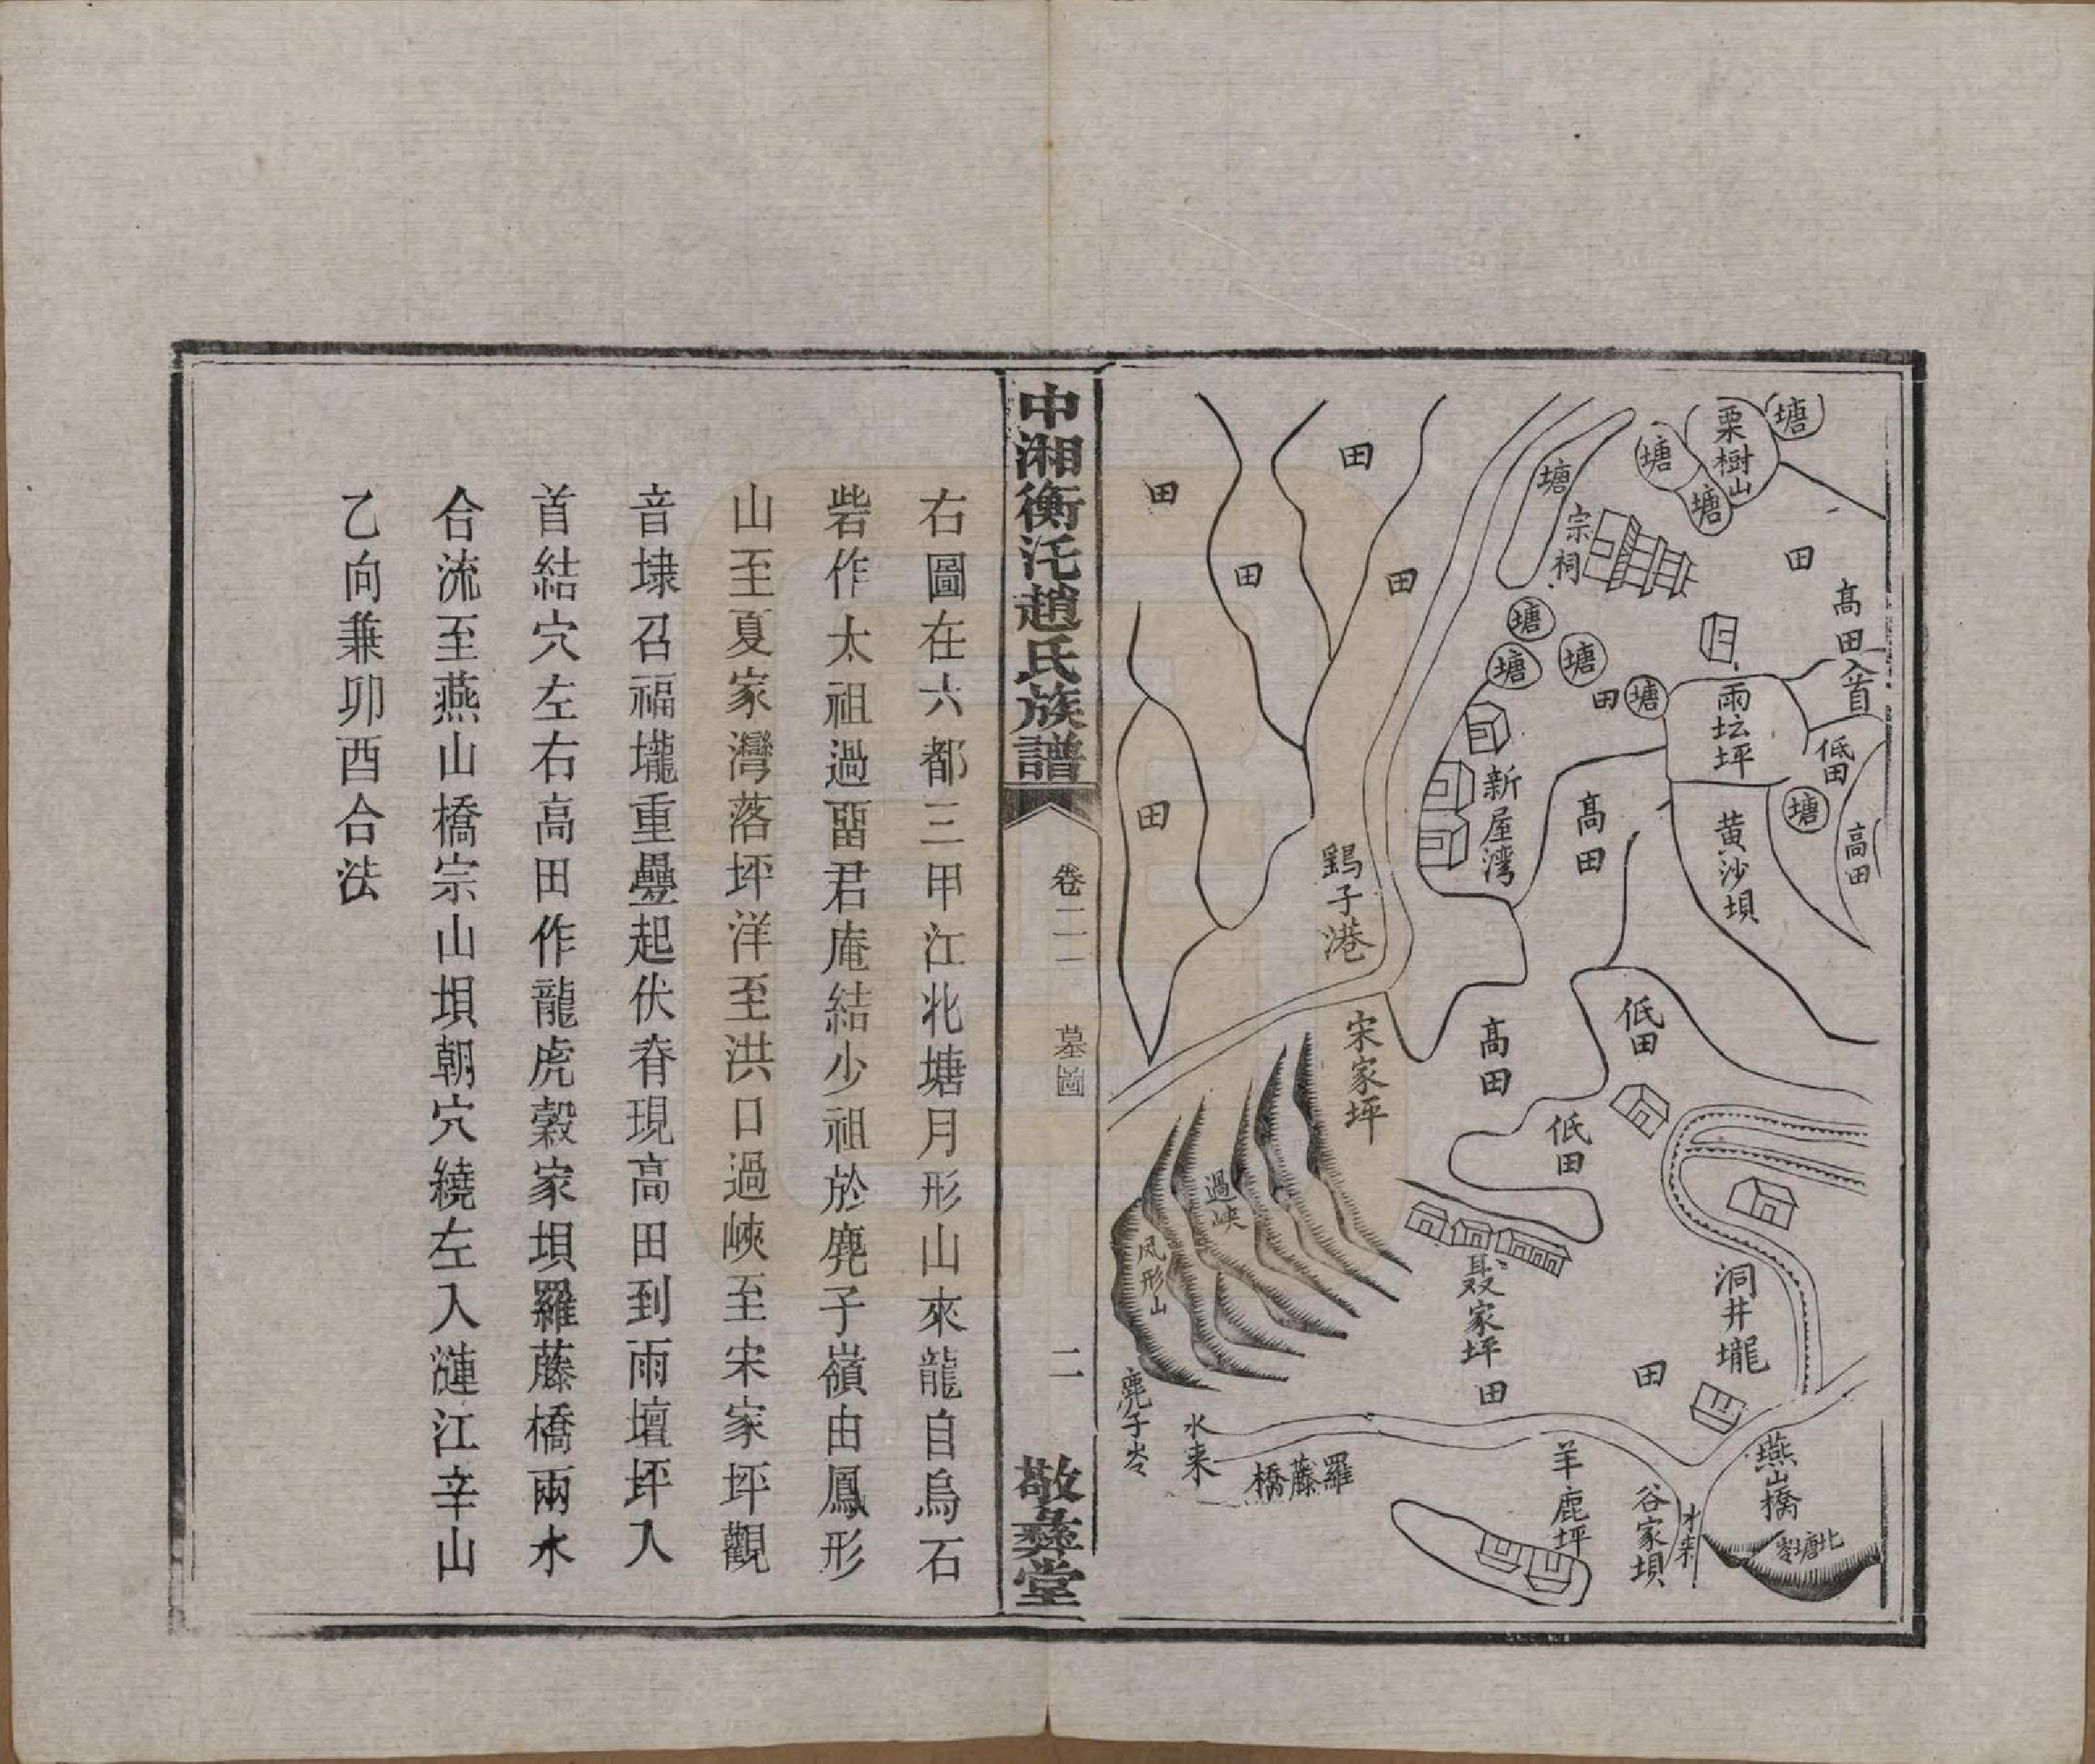 塘
栗樹山
塘
塘
塘
宗祠
田
田
田
田
田
高田
入首
田
塘
塘
塘
田
塘
雨坛坪
低田
塘
高田
黄沙垻
新屋湾
高田
田
鷄子港
宋家坪
高田
低田
低田
過峽
凤形山
聂家坪
田
洞井壠
田
麂子岺
水来
羅藤橋
羊鹿坪
谷家垻
水来
燕山橋
北塘岺
中湘衡沱趙氏族譜
卷二一
墓圖
二
敬彝堂
右圖在六都三甲江北塘月形山來龍自烏石
砦作太祖過畱君庵結少祖於麂子嶺由鳳形
山至夏家灣落坪洋至洪口過峽至宋家坪觀
音埭召福壠重疊起伏脊現高田到雨壇坪入
首結穴左右高田作龍虎穀家垻羅藤橋兩水
合流至燕山橋宗山垻朝穴繞左入漣江辛山
乙向兼卯酉合法